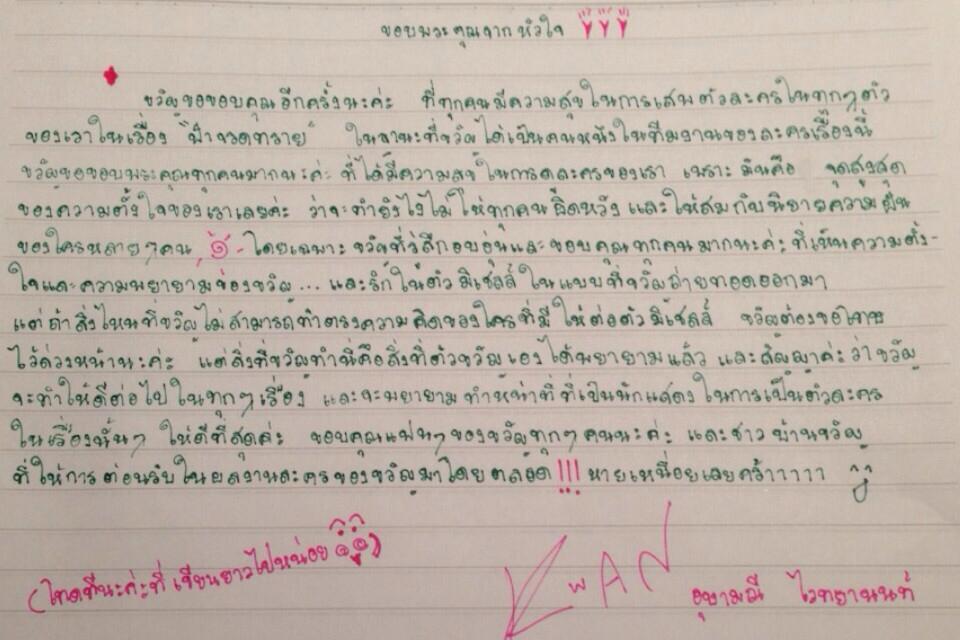 ขอบพระคุณจากหัวใจ
ขวัญขอขอบคุณอีกครั้งนะค่ะ ที่ทุกคนมีความสุขในการเสพตัวละครในทุกๆตัว
ของเราในเรื่อง "ฟ้าจรดทราย" ในฐานะที่ขวัญได้เป็นคนหนึ่งในทีมงานของละครเรื่องนี้
ขวัญขอขอบพระคุณทุกคนมากนะค่ะ ที่ได้มีความสุขในการดูละครของเรา เพราะมันคือ จุดสูงสุด
ของความตั้งใจของเราเลยค่ะ ว่าจะทำยังไงไม่ให้ทุกคนผิดหวัง และให้สมกับนิยายความฝัน
ของใครหลายๆคน โดยเฉพาะขวัญที่รู้สึกอบอุ่นและขอบคุณทุกคนมากนะค่ะ ที่เห็นความตั้ง-
ใจและความพยายามของขวัญ... และรักในตัวมิเชลล์ ในแบบที่ขวัญถ่ายทอดออกมา
แต่ถ้าสิ่งไหนที่ขวัญไม่สามารถทำตรงความคิดของใครที่มีให้ต่อตัวมิเชลล์ ขวัญต้องขอโทษ
ไว้ด้วยนะค่ะ แต่สิ่งที่ขวัญทำนี่คือสิ่งที่ตัวขวัญเองได้พยายามแล้ว และสัญญาค่ะว่าขวัญ
จะทำให้ดีต่อไปในทุกๆเรื่อง และจะพยายามทำหน้าที่ที่เป็นนักแสดงในการเป็นตัวละคร
ในเรื่องนั้นๆ ให้ดีที่สุดค่ะ ขอบคุณแฟนๆของขวัญทุกๆคนนะค่ะ และชาวบ้านขวัญ
ที่ให้การต้อนรับในผลงานละครของขวัญมาโดยตลอด!!! หายเหนื่อยเลยคร้าาาาา
(โทดทีนะค่ะที่เขียนยาวไปหน่อย)
KwAN
อุษามณี ไวทยานนท์